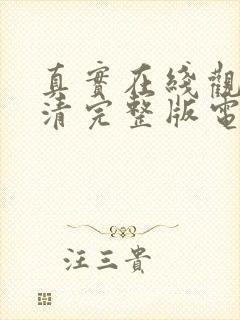 真實在綫觀
清完整版電
汪三貴